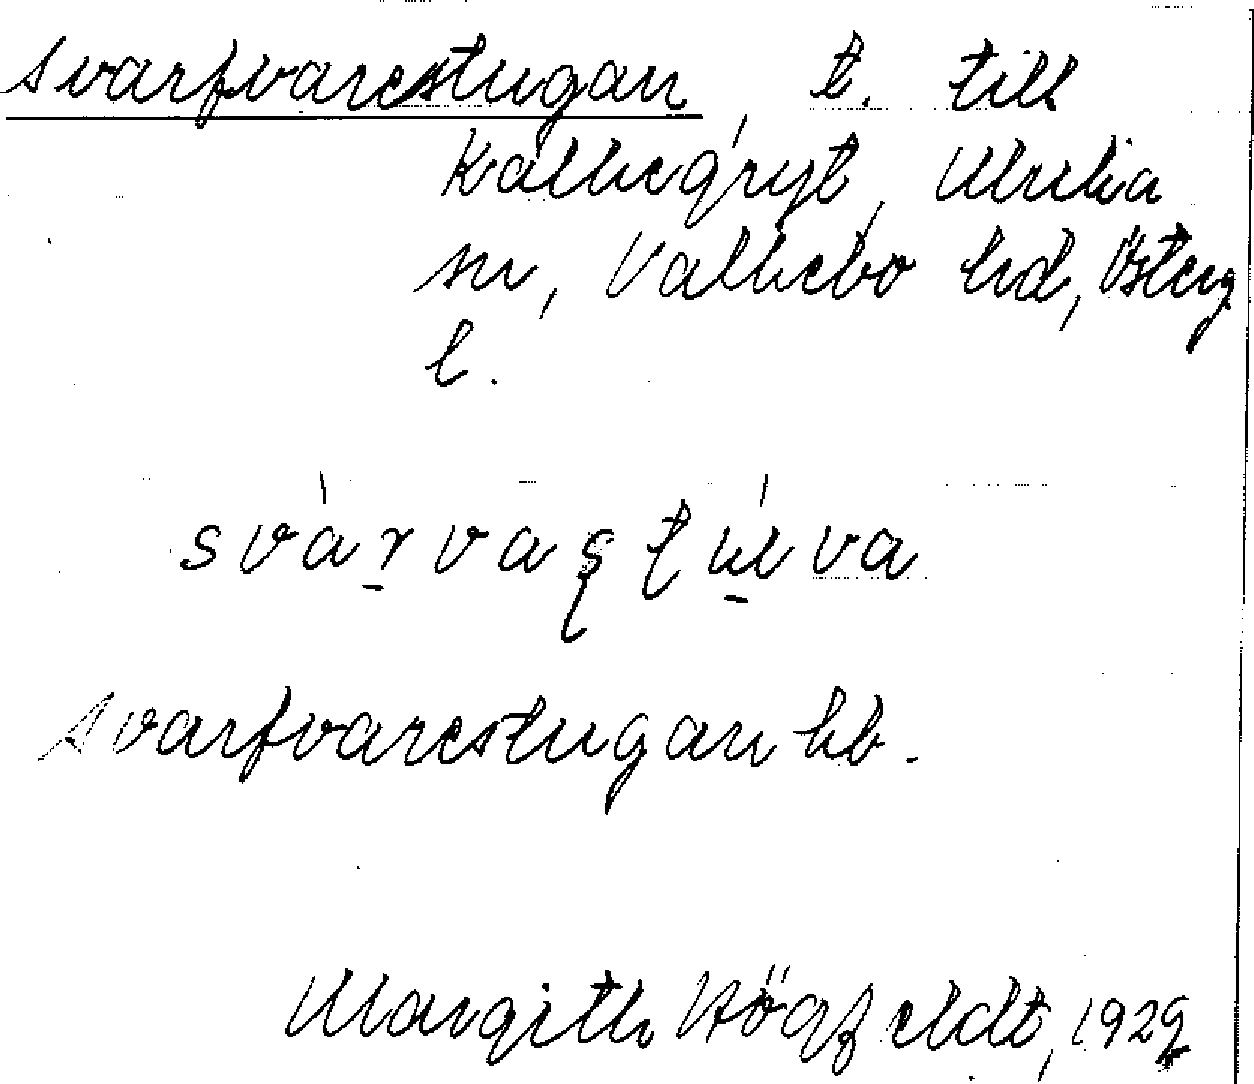 Svarfvarestugan t. till
Källhegryt, Ulrika
sn, Valkebo hd, Österg.
l.
svárvas̨tu̱va
Svarfvarestugan hb.
Margith Högfeldt, 1929